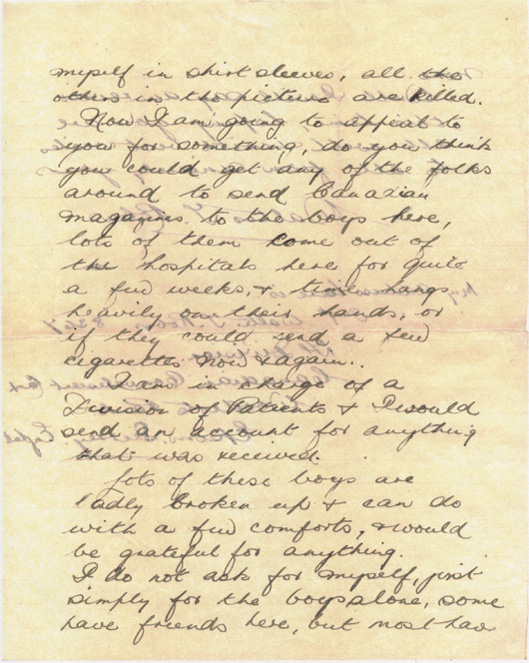 myself in shirt sleeves, all the
others in the picture are killed.
Now I am going to appeal to
you for something, do you think
you could get any of the folks
around to send Canadian
magazins to the boys here,
lots of them come out of
the hospitals here for quite
a few weeks, & time hangs
heavily on their hands, or
if they could send a few
cigarettes now & again.
I am in charge of a
Division of Patients & I would
send an account for anything
that was received.
Lots of these boys are
badly broken up & can do
with a few comforts, & would
be grateful for anything.
I do not ask for myself, just
simply for the boys alone, some
have friends here, but most have